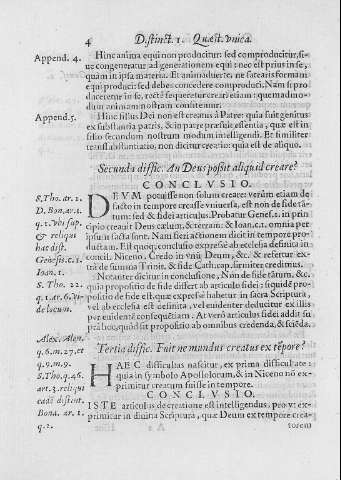 4 Distinct. 1. Quæst. vnica.
Append. 4.
Hinc anima equi non producitur: sed comproducitur, si-
ue congeneratur ad generationem equi: nec est prius in se,
quàm in ipsa materia. Et animaduerte, ne fatearis formam
equi produci: sed debes concedere comproduci. Nam si pro
duceretur in se, rectè sequeretur creari etiam: quemadmo-
dum animam nostram constituunt.
Append. 5.
Hinc filius Dei non est creatus à Patre: quia fuit genitus
ex substantia patris, & in patre præfuit essentia, quæ est in
filio secundum nostrum modum intelligendi. Et similiter
transsubstantiatio, non dicitur creatio: quia est de aliquo.
Secunda diffic. An Deus possit aliquid creare?
CONCLVSIO.
S. Tho. ar. 1.
D. Bon. ar. 1.
q. 1. vbi sup.
& reliqui
hac dist.
Genesis. c. 1.
Ioan. 1.
S. Tho. 22.
q. 1. ar. 6. vi-
de locum.
DEVM potuisse non solum creare: verùm etiam de
facto in tempore creasse vniuersa, est non de fide tā-
tum: sed & fidei articulus. Probatur Genes. 1. in prin
cipio creauit Deus cælum, & terram: & Ioan. c. 1. omnia per
ipsum facta sunt. Nam fieri actionem dicit in tempore pro-
ductam. Est quoq; conclusio expressè ab ecclesia definita in
concil. Niceno. Credo in vnū Deum, &c. & refertur ex-
trà de summa Trinit. & fide Cath. cap. firmiter credimus.
Notanter dicitur in conclusione, Non de fide tātum, &c.
quia propositio de fide differt ab articulo fidei: siquidē pro-
positio de fide est, quæ expressè habetur in sacra Scriptura,
vel ab ecclesia est definita, vel euidenter deducitur ex illis
per euidentē consequētiam. At verò articulus fidei addit su
prà hoc, quòd sit propositio ab omnibus credenda, & sciēda.
Tertia diffic. Fuit ne mundus creatus ex tēpore?
Alex. Alen.
q. 6. m. 27. et
q. 9. m. 9.
S. Tho. q. 46.
art. 3. reliqui
eadē distint.
Bona. ar. 1.
q. 2.
HAEC difficultas nascitur, ex prima difficultate:
quia in symbolo Apostolorum, & in Niceno nō ex-
primitur creatum fuisse in tempore.
CONCLVSIO.
ISTE articulus de creatione est intelligendus, prout ex-
primitur in diuina Scriptura, quæ Deum ex tempore crea-
torem